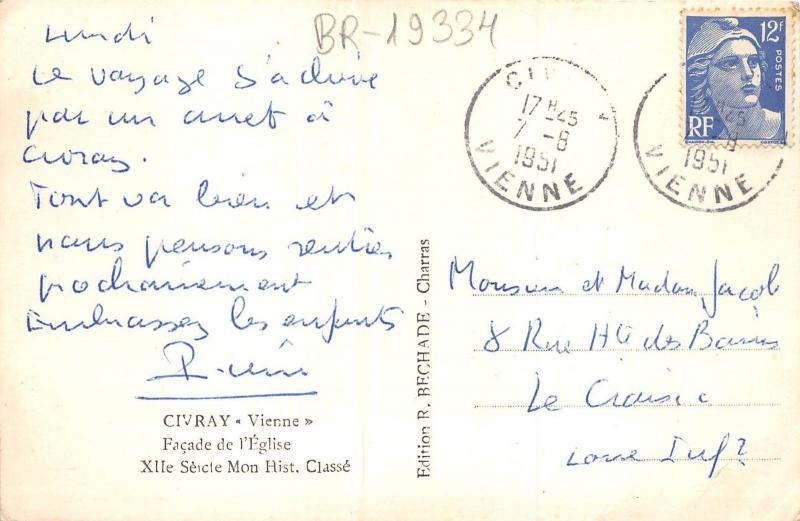 BR-19334
Lundi
Le voyage s'achève
par un arret à
Civray.
Tout va bien et
nous pensons rentrer
prochainement
Embrassez les enfants
CIVRAY « Vienne »
Façade de l'Église
XIIe Sèicle Mon Hist. Classé
Edition R. BECHADE - Charras
CIV
17 H 45
7 -8
1951
VIENNE
45
-8
1951
VIENNE
12F
POSTES
RF
Monsieur et Madame Jacob
8 Rue Hte des Bains
Le Croisic
Loire Inf